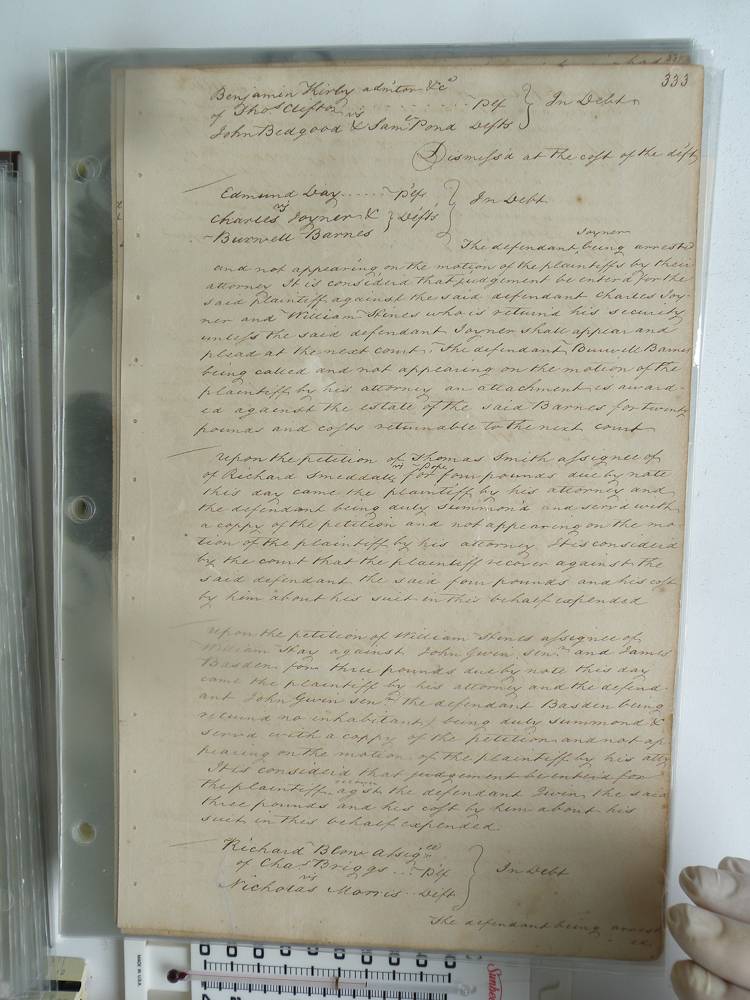 333
Benjamin Kirby admtor &c
of Thos Clifton ........ Plf } In Debt
vs
John Bedgood & Saml Pond Defts
Dismiss'd at the cost of the defts
Edmund Day ...... Plf } In Debt
vs
Charles Joyner & } Defts
Burwell Barnes
Joyner
The defendant, being arrested
and not appearing on the motion of the plaintiffs by their
attorney It is considerd that judgement be enterd for the
said plaintiff against the said defendant Charles Joy-
ner and William Hines who is returnd his security
unless the said defendant Joyner shall appear and
plead at the next court, The defendant Burwell Barnes
being called and not appearing on the motion of the
plaintiff by his attorney an attachment is award-
ed against the estate of the said Barnes for twenty
pounds and costs returnable to the next court
Upon the petition of Thomas Smith assignee of
vs Pope
of Richard Smeddall, for four pounds due by note
this day came the plaintiff by his attorney and
the defendant being duly summon'd and serv'd with
a coppy of the petition and not appearing on the mo-
tion of the plaintiff by his attorney It is considerd
by the court that the plaintiff recover against the
said defendant the said four pounds and his cost
by him about his suit in this behalf expended
Upon the petition of William Hines assignee of
William Hay against John Gwin senr and James
Basden for three pounds due by note this day
came the plaintiff by his attorney and the defend-
ant John Gwin senr (the defendant Basden being
returnd no inhabitant) being duly summond &
serv'd with a coppy of the petition and not ap
pearing on the motion of the plaintiff by his atty
It is considerd that judgement be enterd for
recover
the plaintiff agst the defendant Gwin the said
three pounds and his cost by him about his
suit in this behalf expended.
Richard Blow assigee
of Chas Briggs ... Plf } In Debt
vs
Nicholas Morris . Deft
The defendant being arrest
ed
MADE IN U.S.A.